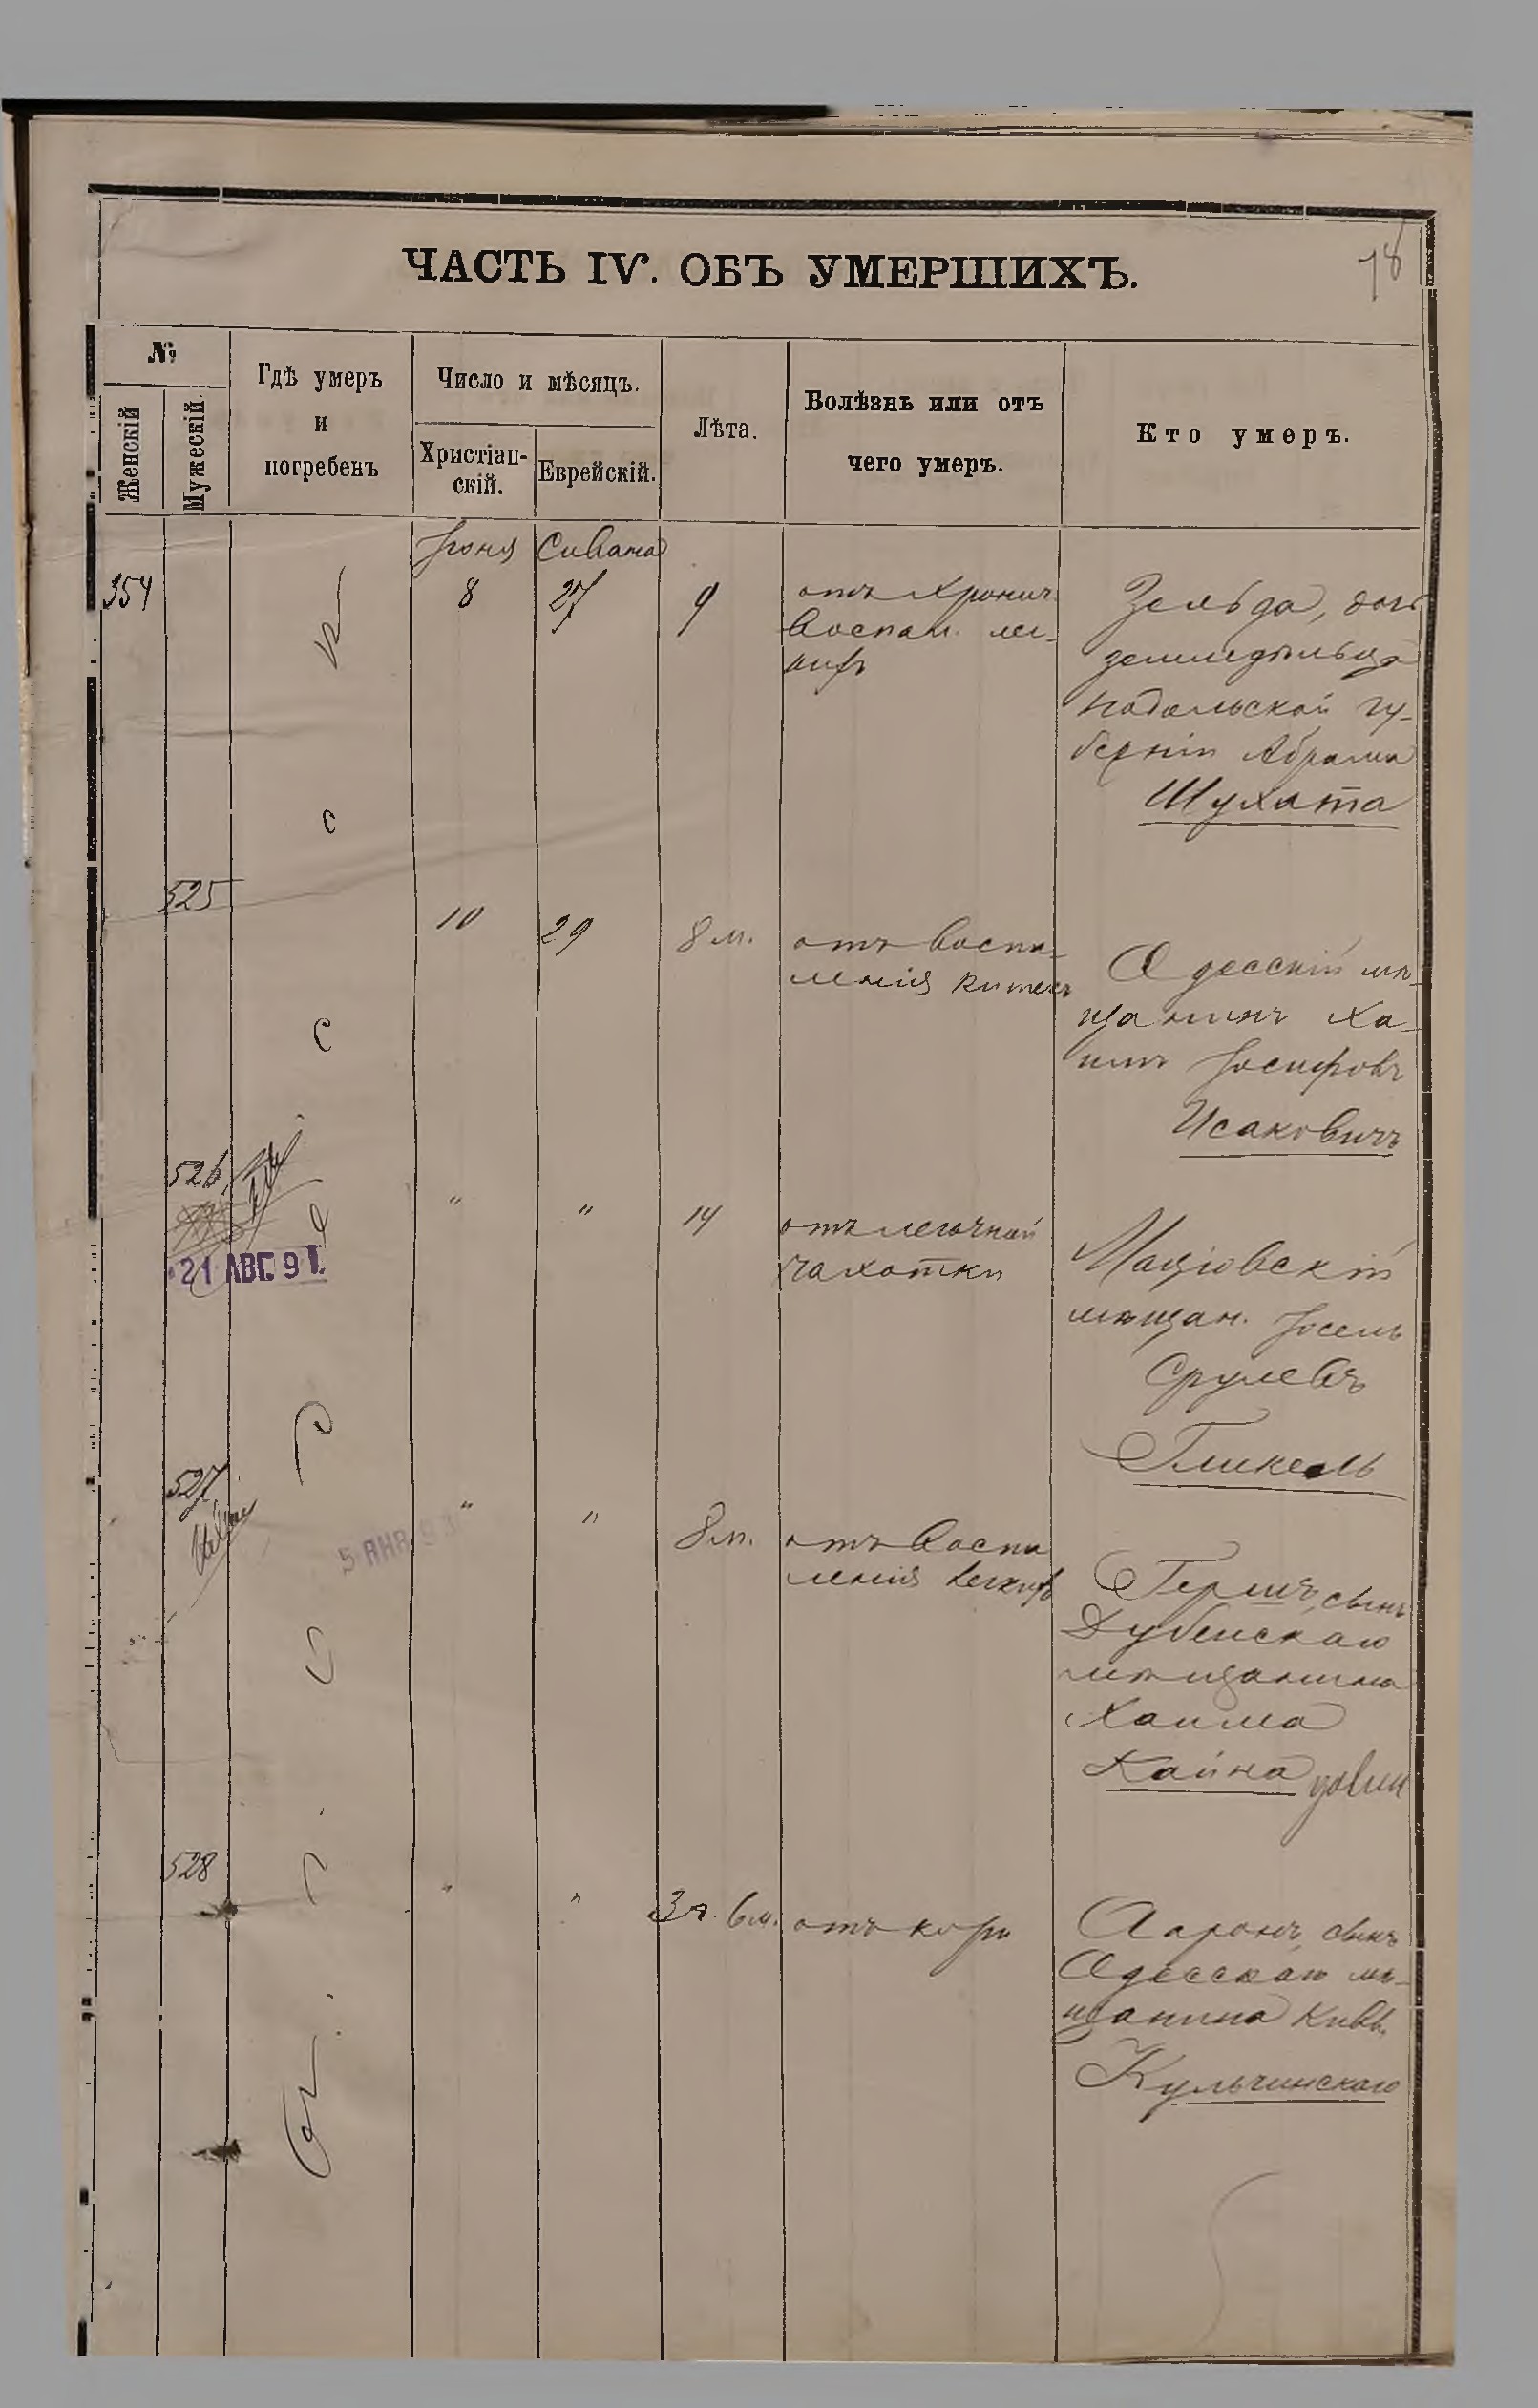 78
ЧАСТЬ IV. ОБЪ УМЕРШИХЪ.
№
Женскій
Мужескій
Гдѣ умеръ
и
погребенъ
Число и мѣсяцъ.
Христіан-
скій.
Еврейскій.
Лѣта.
Болѣзнь или отъ
чего умеръ.
Кто умеръ.
Іюня Сивана
354 8 27 9
отъ хронич.
воспал. лег-
кихъ
Зельда, дочь
земледѣльца
Подольской гу-
берніи Абрама
Шухата
525 10 29 8 м.
отъ воспа-
ленія кишекъ
Одесскій мѣ-
щанинъ Ха-
имъ Іосифовъ
Исаковичъ
526 " " 14
отъ легочной
чахотки
21 АВГ. 91.
Маціовскій
мѣщан. Іосель
Срулевъ
Гликель
527 " " 8 м.
отъ воспа
ленія легкихъ
5 ЯНВ 93
Гершъ, сынъ
Дубенскаго
мѣщанина
Хаима
Кайна
528 " " 3 г. 6 м. отъ кори
Ааронъ, сынъ
Одесскаго мѣ-
щанина Кивы
Кульчинскаго
Одесса